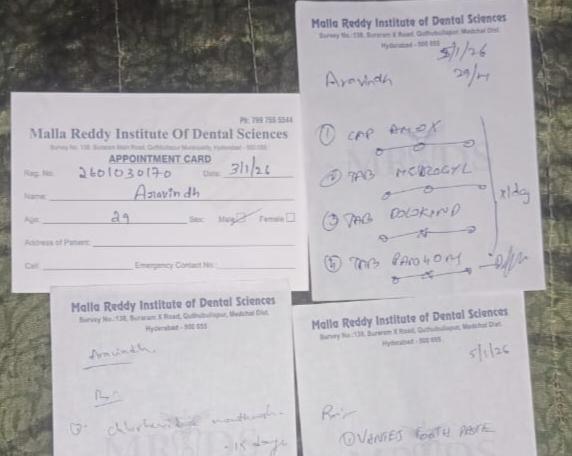 Malla Reddy Institute of Dental Sciences
Survey No.:138, Suraram X Road, Quthubullapur, Medchal Dist.
Hyderabad - 500 055
5/1/26
Aravindh
29/M
① CAP AMOX
② TAB METROGYL
③ TAB DOLOKIND
④ TAB PAN 40M
Ph: 799 755 5544
Malla Reddy Institute Of Dental Sciences
APPOINTMENT CARD
Reg. No. 2601030170 Date: 3/1/26
Name: Aravindh
Age: 29 Sex: Male Female
Address of Patient:
Cell: Emergency Contact No.:
Malla Reddy Institute of Dental Sciences
Survey No.:138, Suraram X Road, Quthubullapur, Medchal Dist.
Hyderabad - 500 055
Aravindh
- 15 days
Malla Reddy Institute of Dental Sciences
Survey No.:138, Suraram X Road, Quthubullapur, Medchal Dist.
Hyderabad - 500 055
5/1/26
① TOOTH PASTE